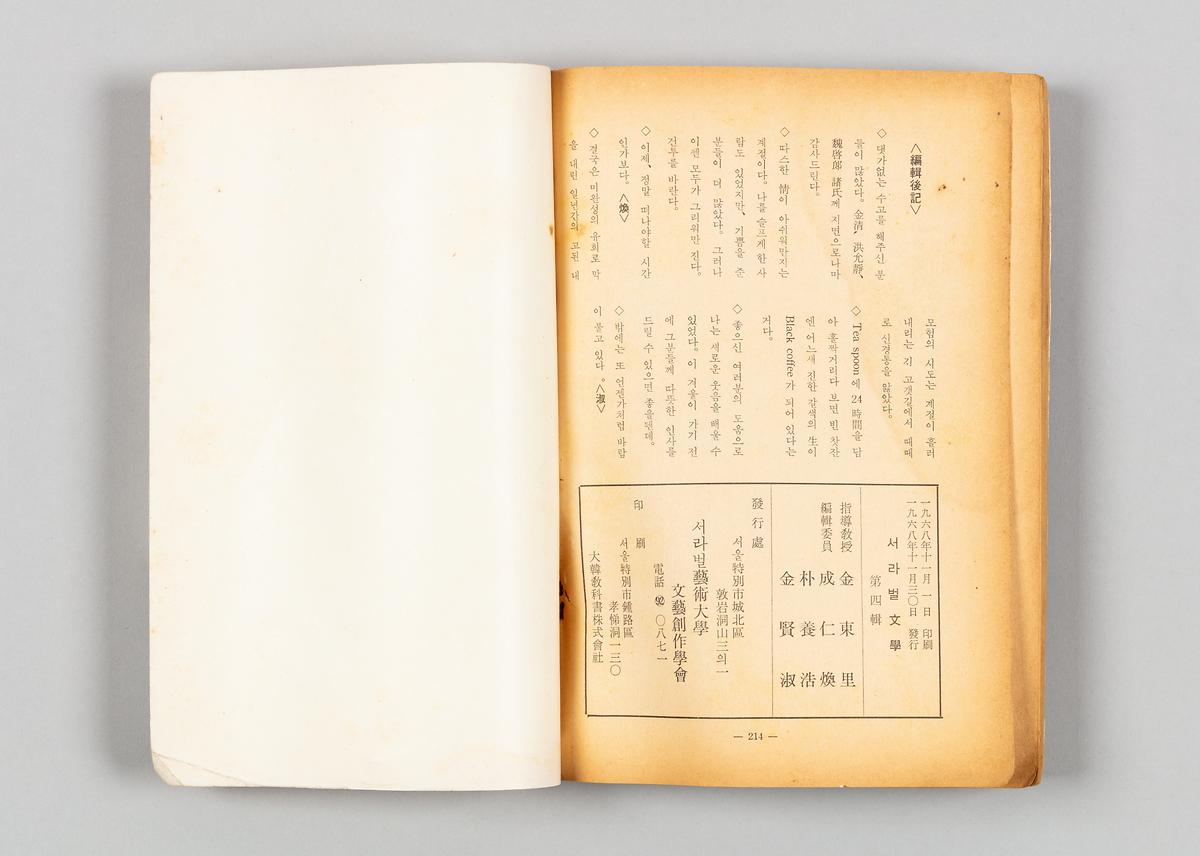 <編輯後記>
◇ 댓가없는 수고를 해주신 분
들이 많았다。 金淸、洪允靜、
魏啓郞 諸氏께 지면으로나마
감사드린다。
◇ 따스한 情이 아쉬워만지는
계절이다。 나를 슬프게 한 사
람도 있었지만、 기쁨을 준
분들이 더 많았다。 그러나
이젠 모두가 그리워만 진다。
건투를 바란다。
◇ 이제、 정말 떠나야할 시간
인가보다。 <煥>
◇ 결국은 미완성의 유희로 막
을 내린 일년간의 고된 내
모험의 시도는 계절이 흘러
내리는 긴 고갯길에서 때때
로 신경통을 앓았다。
◇ Tea spoon 에 24 時間을 담
아 홀짝거리다 보면 빈 찻잔
엔 어느새 진한 갈색의 生이
Black coffee 가 되어 있다는
거다。
◇ 좋으신 여러분의 도움으로
나는 새로운 웃음을 배울 수
있었다。 이 겨울이 가기 전
에 그분들께 따뜻한 인사를
드릴 수 있으면 좋을텐데。
◇ 밖에는 또 언젠가처럼 바람
이 불고 있다。 <淑>
一九六八年十一月 一日 印刷
一九六八年十一月三〇日 發行
서라벌文學
第四輯
指導教授 金東里
編輯委員 成仁煥
朴養浩
金賢淑
發行處
서울特別市城北區
敦岩洞山三의一
서라벌藝術大學
文藝創作學會
電話 92 〇八七一
印刷
서울特別市鍾路區
孝悌洞一三〇
大韓敎科書株式會社
— 214 —